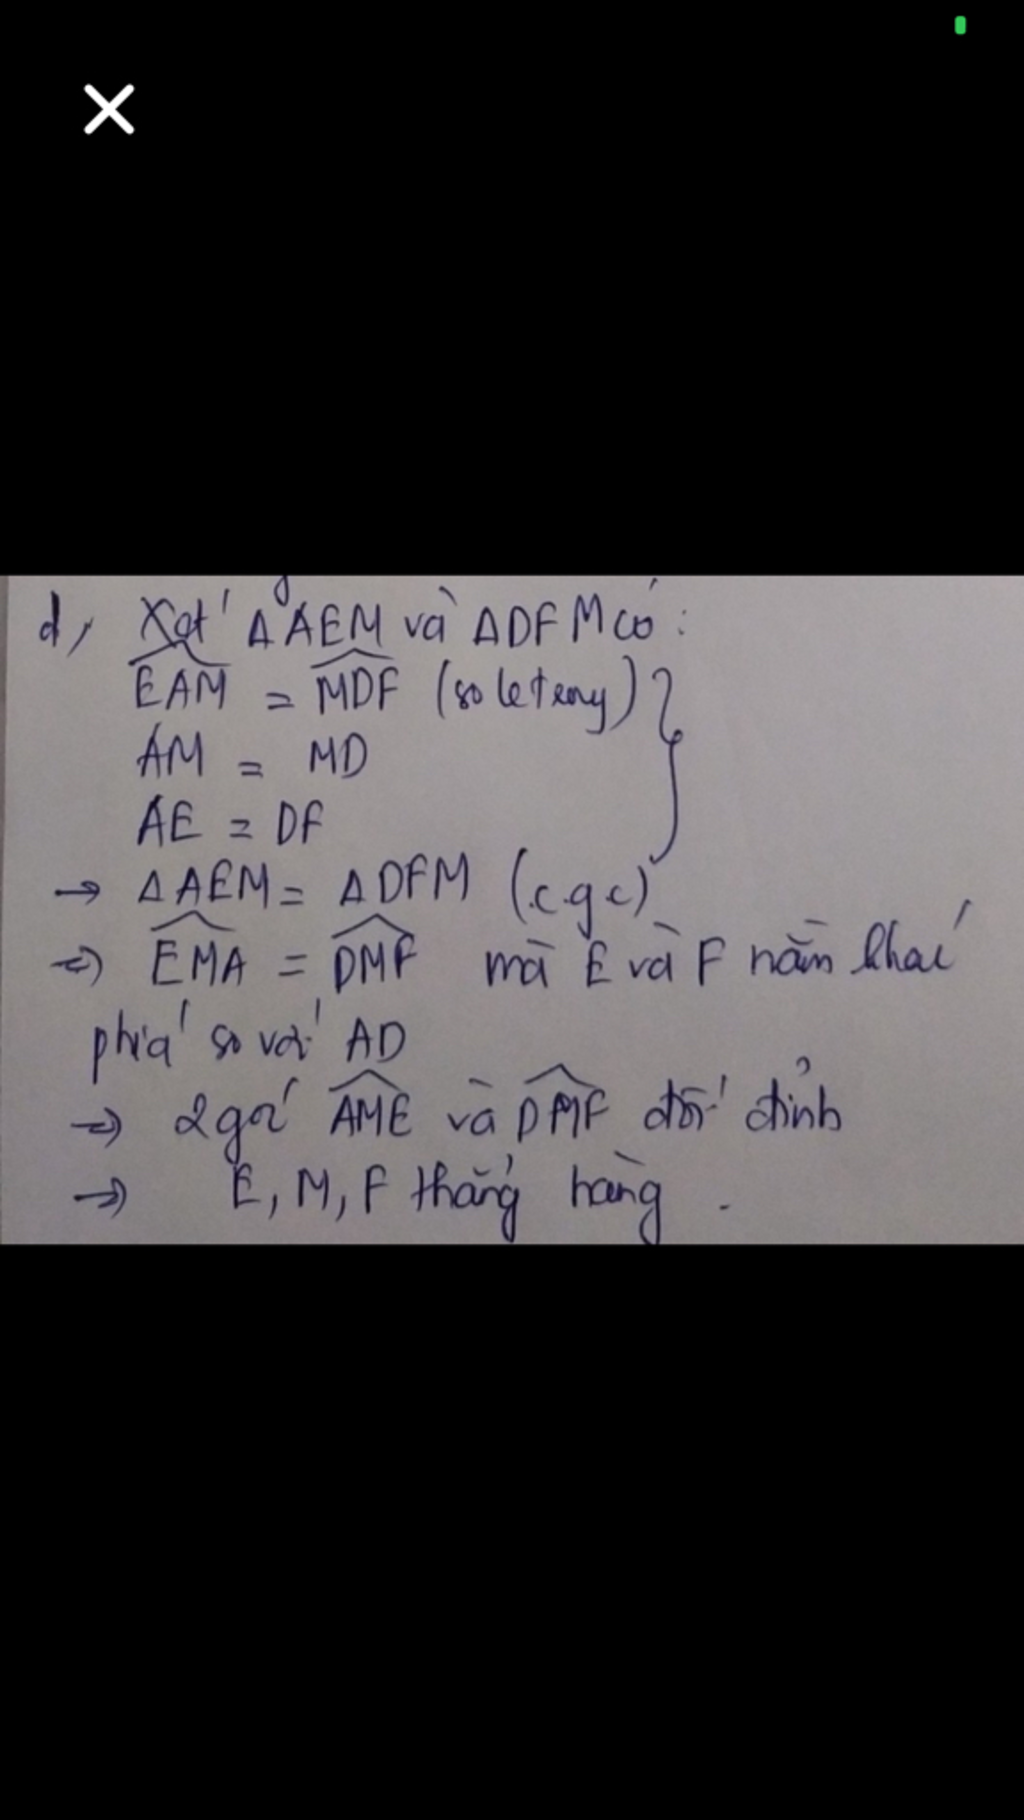 d, Xét ΔAEM và ΔDFM có:
EAM = MDF (so le trong)
AM = MD
AE = DF
→ ΔAEM = ΔDFM (c.g.c)
→ EMA = DMF mà E và F nằm khác
phía so với AD
→ 2 góc AME và DMF đối đỉnh
→ E, M, F thẳng hàng.